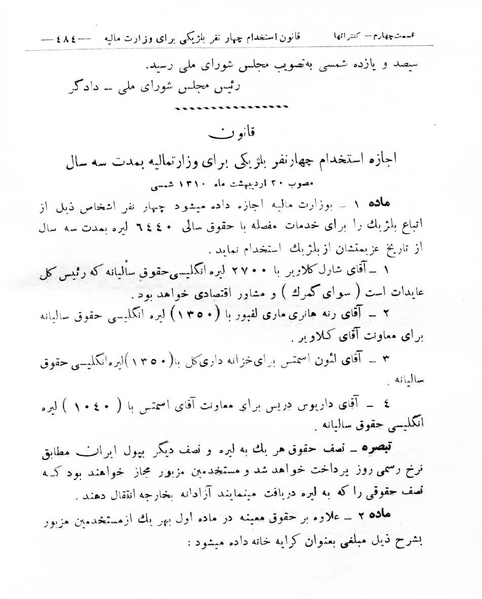 قسمت چهارم – کنتراتها    قانون استخدام چهار نفر بلژیکی برای وزارت مالیه    —۴۸۴—
سیصد و یازده شمسی به‌تصویب مجلس شورای ملی رسید.
رئیس مجلس شورای ملی – دادگر
قانون
اجازه استخدام چهارنفر بلژیکی برای وزارتمالیه بمدت سه سال
مصوب ۲۰ اردیبهشت ماه ۱۳۱۰ شمسی
ماده ۱ – بوزارت مالیه اجازه داده میشود چهار نفر اشخاص ذیل از
اتباع بلژیك را برای خدمات مفصله با حقوق سالی ۶۴۴۰ لیره بمدت سه سال
از تاریخ عزیمتشان از بلژیك استخدام نماید.
۱ – آقای شارل کلاویر با ۲۷۰۰ لیره انگلیسی حقوق سالیانه که رئیس کل
عایدات است ( سوای گمرك ) و مشاور اقتصادی خواهد بود.
۲ – آقای رنه هانری ماری لفبور با (۱۳۵۰) لیره انگلیسی حقوق سالیانه
برای معاونت آقای کلاویر.
۳ – آقای لئون اسمتس برای خزانه داری کل با (۱۳۵۰) لیره انگلیسی حقوق
سالیانه.
۴ – آقای داریوس دریس برای معاونت آقای اسمتس با ( ۱۰۴۰ ) لیره
انگلیسی حقوق سالیانه.
تبصره – نصف حقوق هر یك به لیره و نصف دیگر بپول ایران مطابق
نرخ رسمی روز پرداخت خواهد شد و مستخدمین مزبور مجاز خواهند بود که
نصف حقوقی را که به لیره دریافت مینمایند آزادانه بخارجه انتقال دهند.
ماده ۲ – علاوه بر حقوق معینه در ماده اول بهر یك از مستخدمین مزبور
بشرح ذیل مبلغی بعنوان کرایه خانه داده میشود: